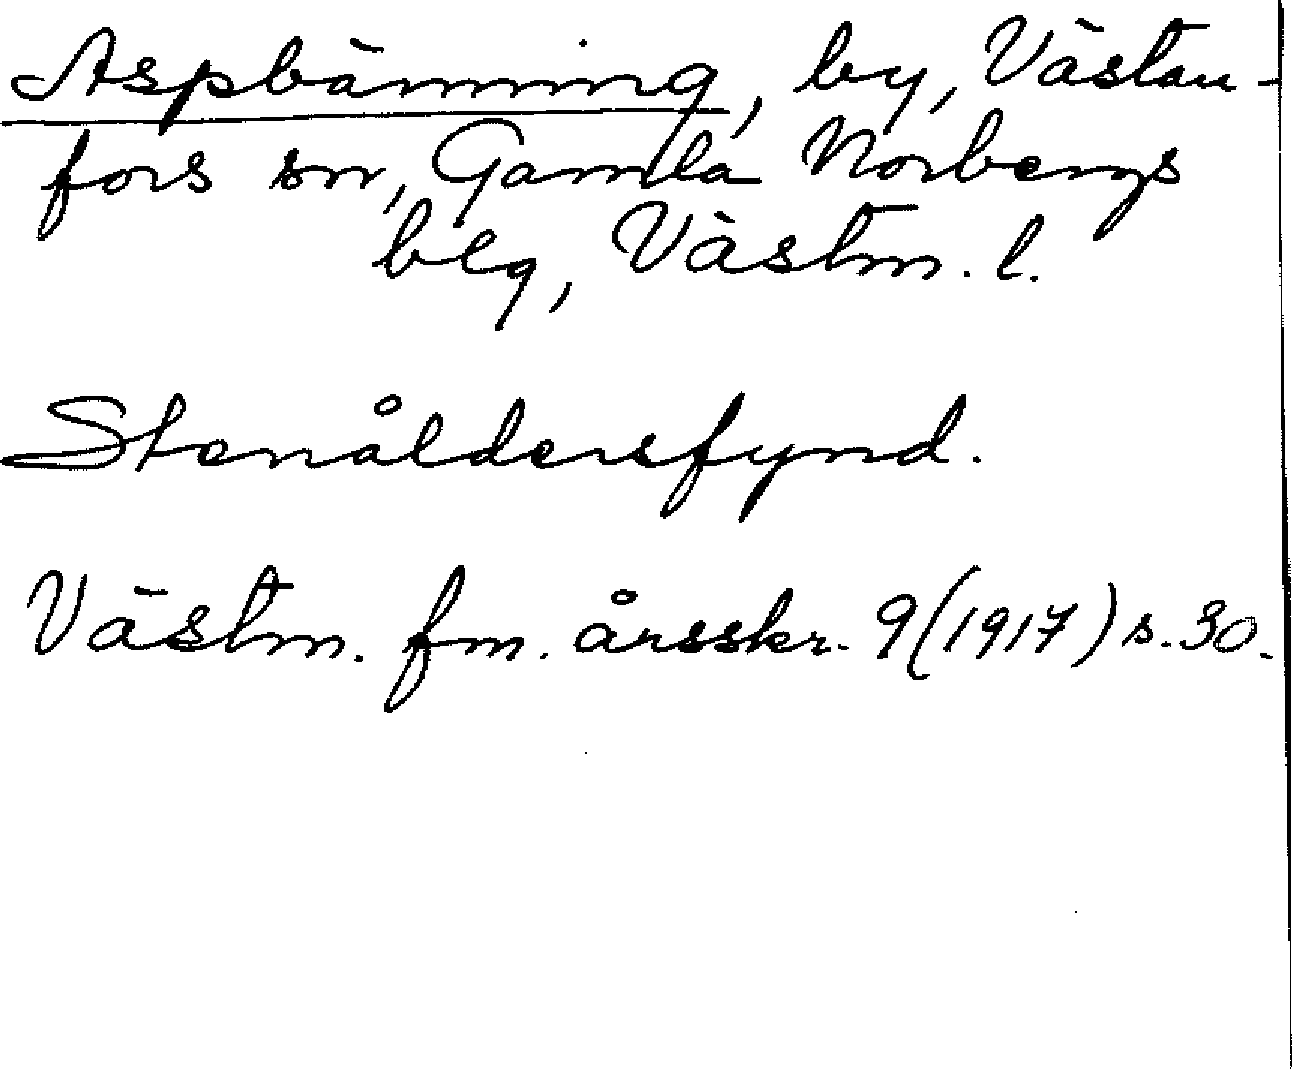 Aspbänning, by, Västan-
fors sn, Gamla Norbergs
blg, Västm. l.
Stenåldersfynd.
Västm. fm. årsskr. 9 (1917) s. 30.